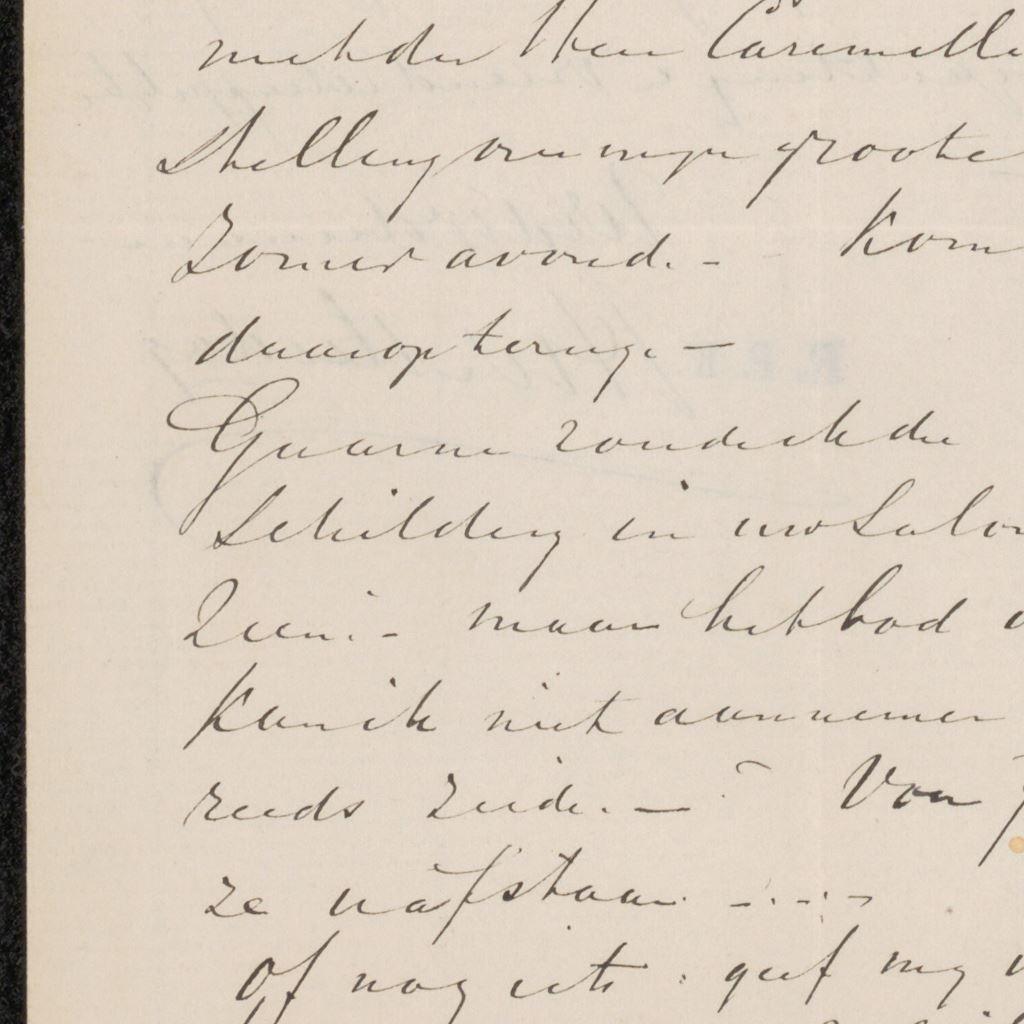 met den Heer Caramelli
stelling over mijn groote
Zomeravond. - Kom
daarop terug. -
Gaarne zoude ik die
Schilderij in uw Salon
Zien. - maar het bod
kan ik niet aannemen
reeds zeide. - Van
ze u afstaan. -..-
Of nog iets : geef mij